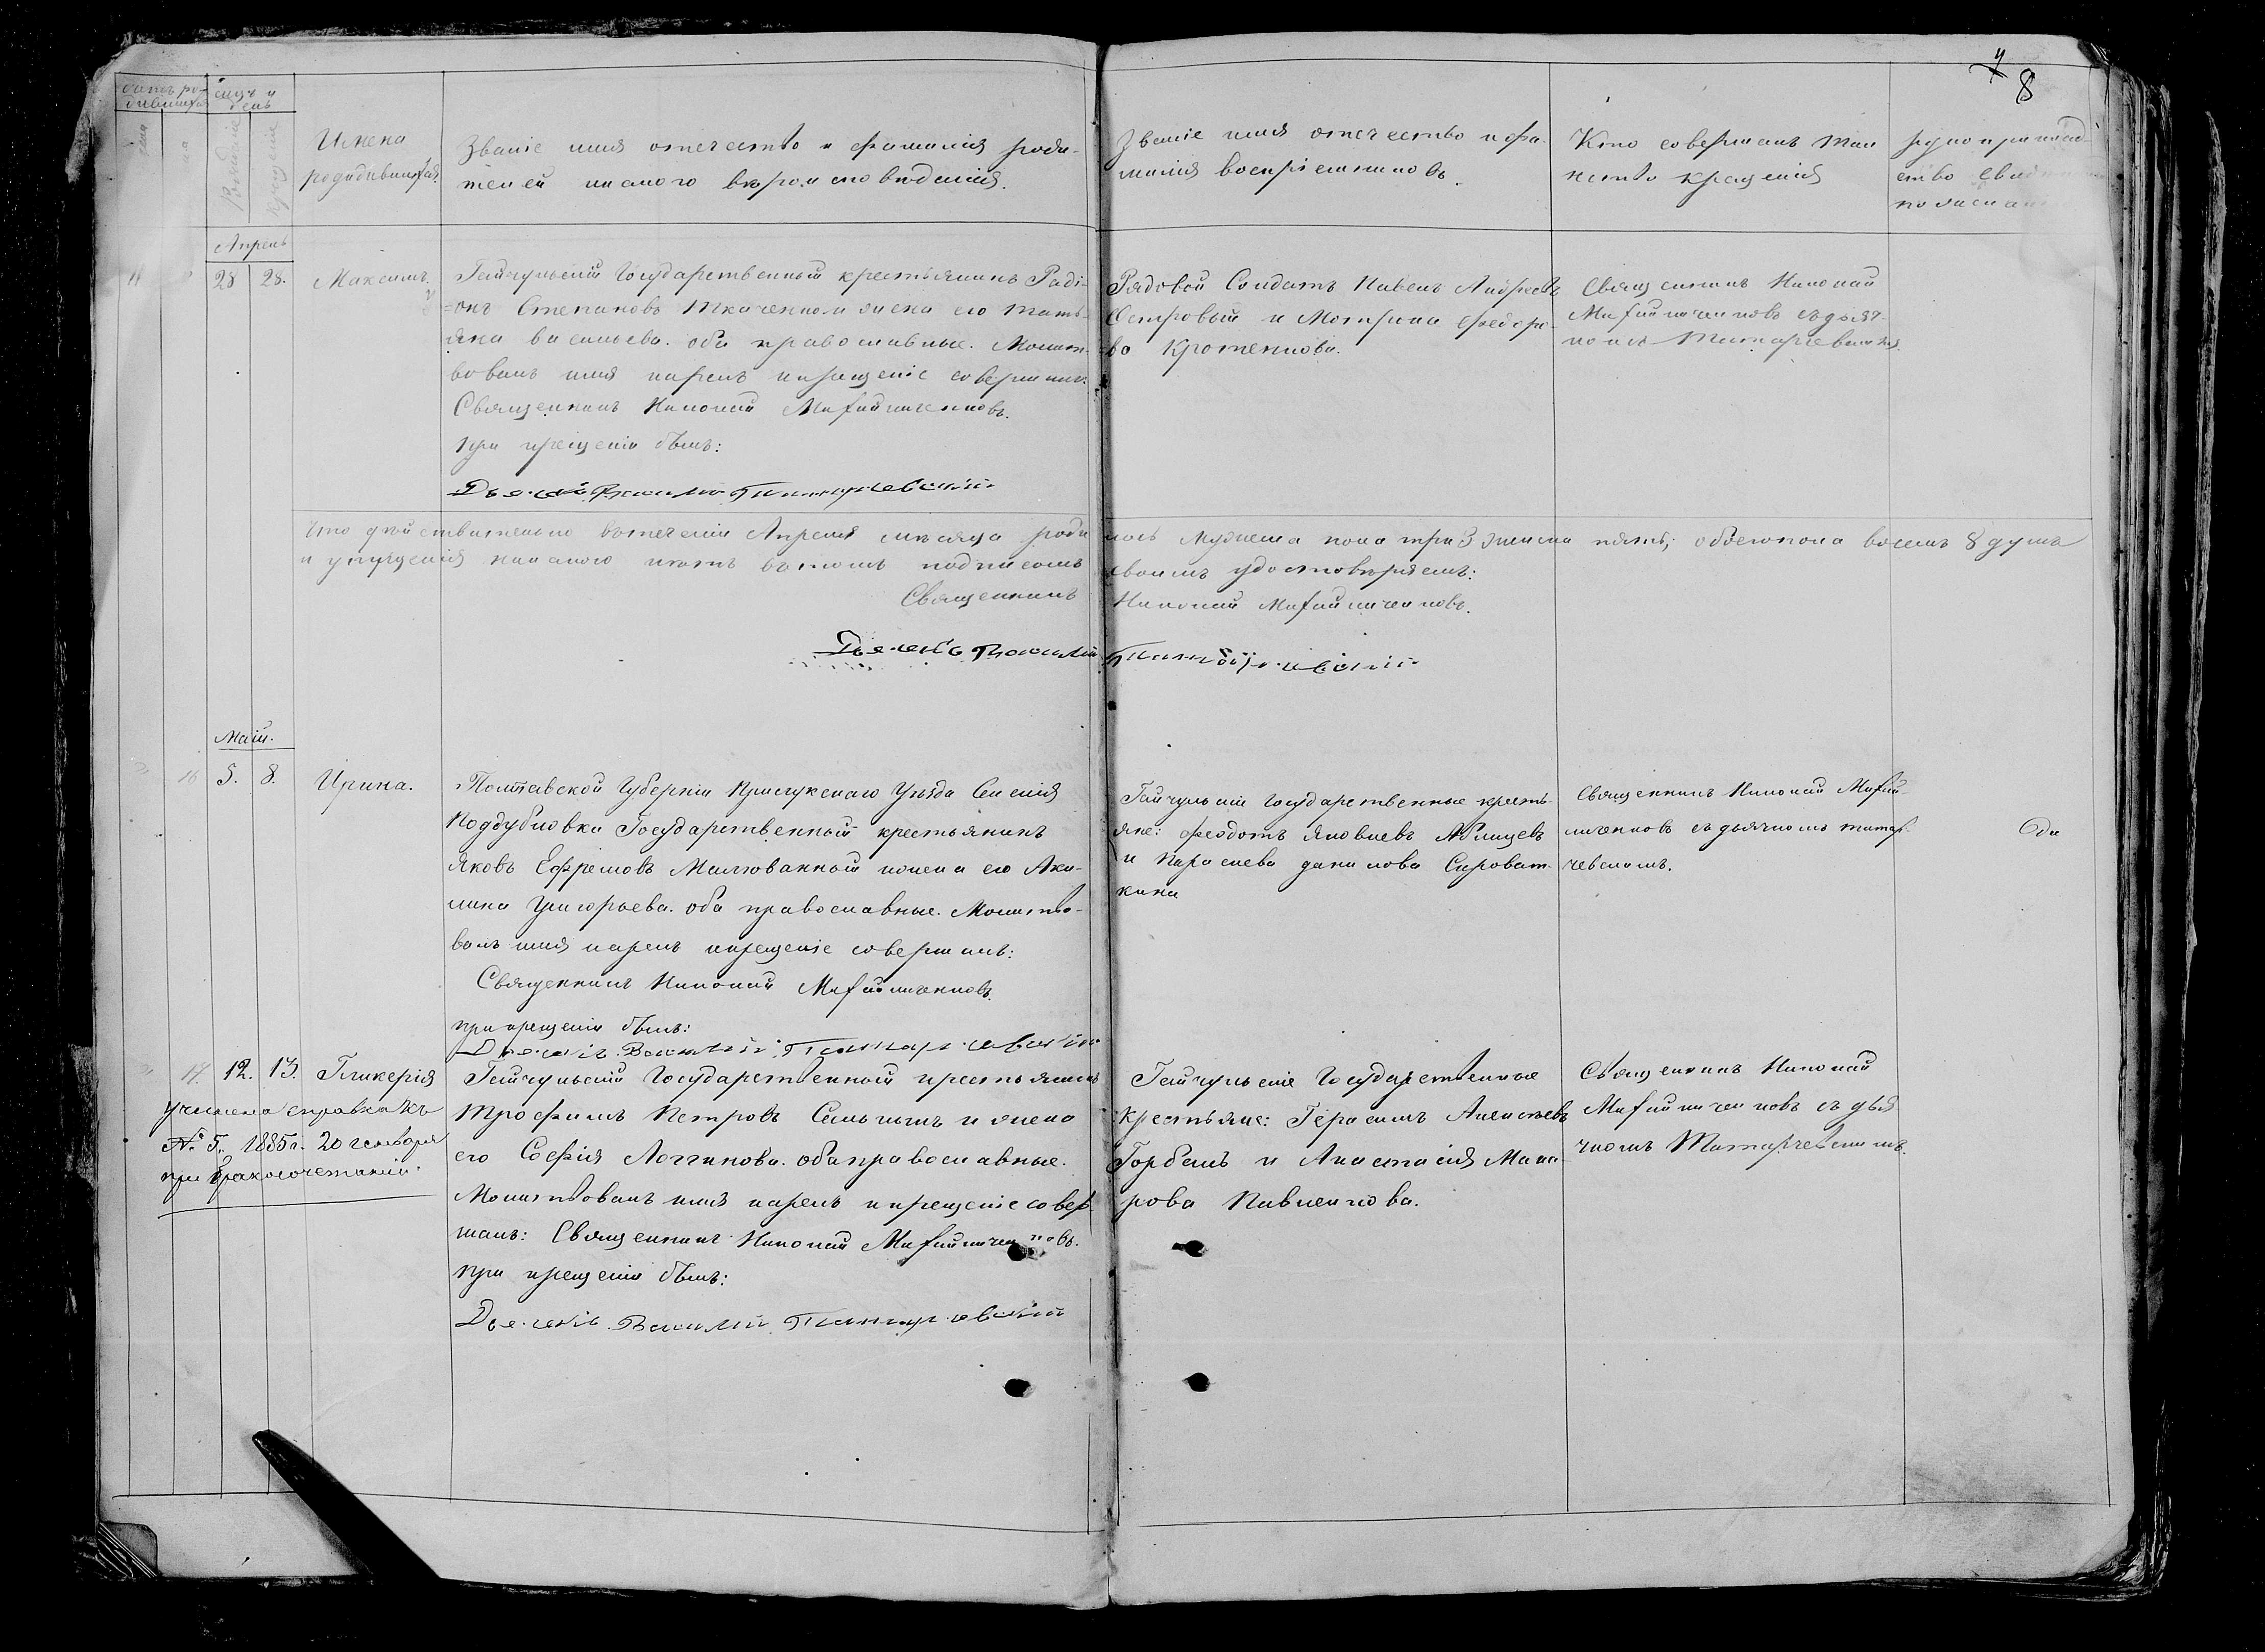 7
8
Имена
родившихся.
Званіе имя отечество и фамилія роди-
телей и какого вѣроисповѣданія.
Званіе имя отечество и фа-
милія воспріемниковъ.
Кто совершалъ таи
нство крещенія
Апрель
11 28 28. Максимъ.
Гайчульскій Государственный крестьянинъ Раді-
=онъ Степановъ Ткаченко и жена его Тать-
яна Васильева. оба православные. Молит-
вовалъ имя нарелъ и крещеніе совершилъ:
Священникъ Николай Михайличенковъ.
при крещеніи былъ:
Дьячекъ Василій Татарчевскій
Рядовой Солдатъ Павелъ Андреевъ
Островый и Мотрона Федоро-
ва Кротенкова.
Священникъ Николай
Михайличенковъ съ дьяч-
комъ Татарчевскимъ.
Что дѣйствительно въ теченіи Апреля мѣсяца роди лось мужеска пола три 3 женска пять; обоего пола восемь 8 душъ
и упущенія никакого нѣтъ въ томъ подписомъ своимъ удостовѣряемъ:
Священникъ Николай Михайличенковъ.
Дьячекъ Василій Татарчевскій
Май.
16 5. 8. Ирина.
Полтавской Губерніи Прилукскаго Уѣзда Селенія
Поддубновки Государственный крестьянинъ
Яковъ Ефремовъ Малеванный и жена его Аки-
лина Григорьева. оба православные. Молитво-
валъ имя нарелъ и крещеніе совершилъ:
Священникъ Николай Михайличенковъ.
при крещеніи былъ:
Дьячекъ Василій Татарчевскій
Гайчульскіе Государственные кресть-
яне: Феодотъ Яковлевъ
и Параскева Данилова Сироват-
кина
Священникъ Николай Михай-
личенковъ съ дьячкомъ Татар-
чевскимъ.
17. 12. 13. Гликерія
Учинена справка къ
№ 5. 1885 г. 20 генваря
при бракосочетаніи.
Гайчульскій Государственный крестьянинъ
Трофимъ Петровъ и жена
его Софія Логгинова. оба православные.
Молитвовалъ имя нарелъ и крещеніе совер-
шалъ: Священникъ Николай Михайличенковъ.
при крещеніи былъ:
Дьячекъ Василій Татарчевскій
Гайчульскіе Государственные
крестьяне: Герасимъ Алексѣевъ
Горбель и Анастасія Мака
рова Павленкова.
Священникъ Николай
Михайличенковъ съ дья
чкомъ Татарчевскимъ.